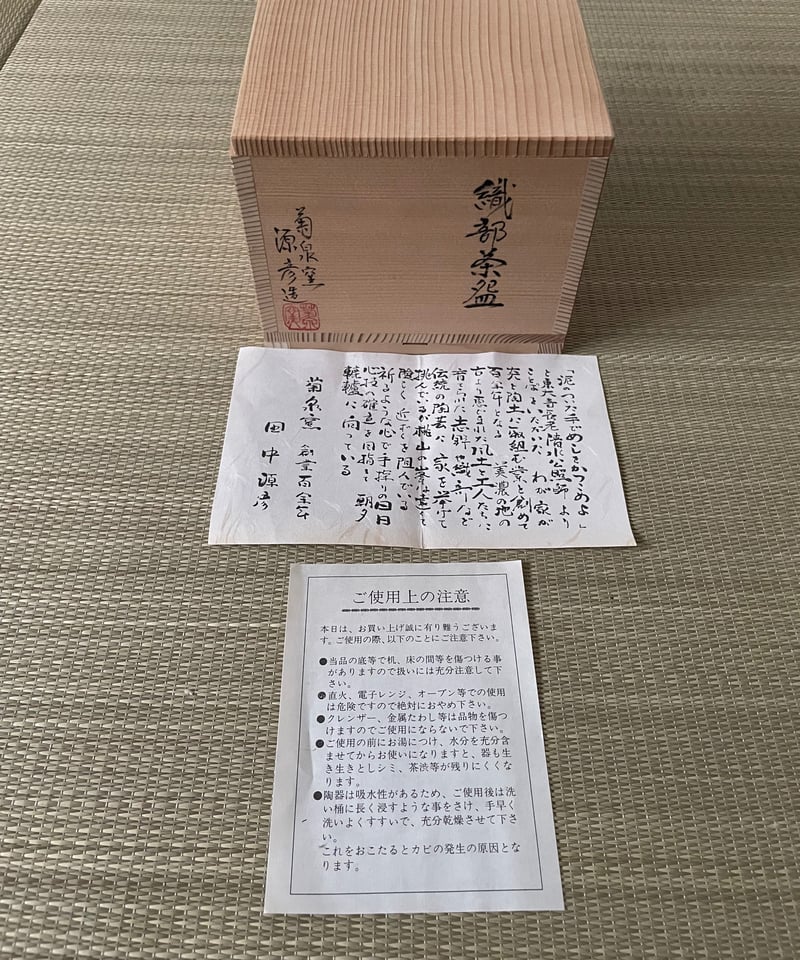 織部茶盌
菊泉窯
源彦造
「泥のついた手でめしをかっこめよ」
と東大寺長老清水公照師より
ことばをいただいた わが家が
美濃の地の
百余年となる
古より恵まれた風土と工人たちに
育てられた志野や織部など
伝統の陶芸に 家を挙げて
挑んでいるが桃山の峯は遠くて
祈るような心で手探りの日日
心技の確立を目指して 朝夕
轆轤に向っている
菊泉窯 創業百余年
田中源彦
ご使用上の注意
本日は、お買い上げ誠に有り難うございま
す。ご使用の際、以下のことにご注意下さい。
●当品の底等で机、床の間等を傷つける事
がありますので扱いには充分注意して下
さい。
●直火、電子レンジ、オーブン等での使用
は危険ですので絶対におやめ下さい。
●クレンザー、金属たわし等は品物を傷つ
けますのでご使用にならないで下さい。
●ご使用の前にお湯につけ、水分を充分含
ませてからお使いになりますと、器も生
き生きとしシミ、茶渋等が残りにくくな
ります。
●陶器は吸水性があるため、ご使用後は洗
い桶に長く浸すような事をさけ、手早く
洗いよくすすいで、充分乾燥させて下さ
い。
これをおこたるとカビの発生の原因とな
ります。